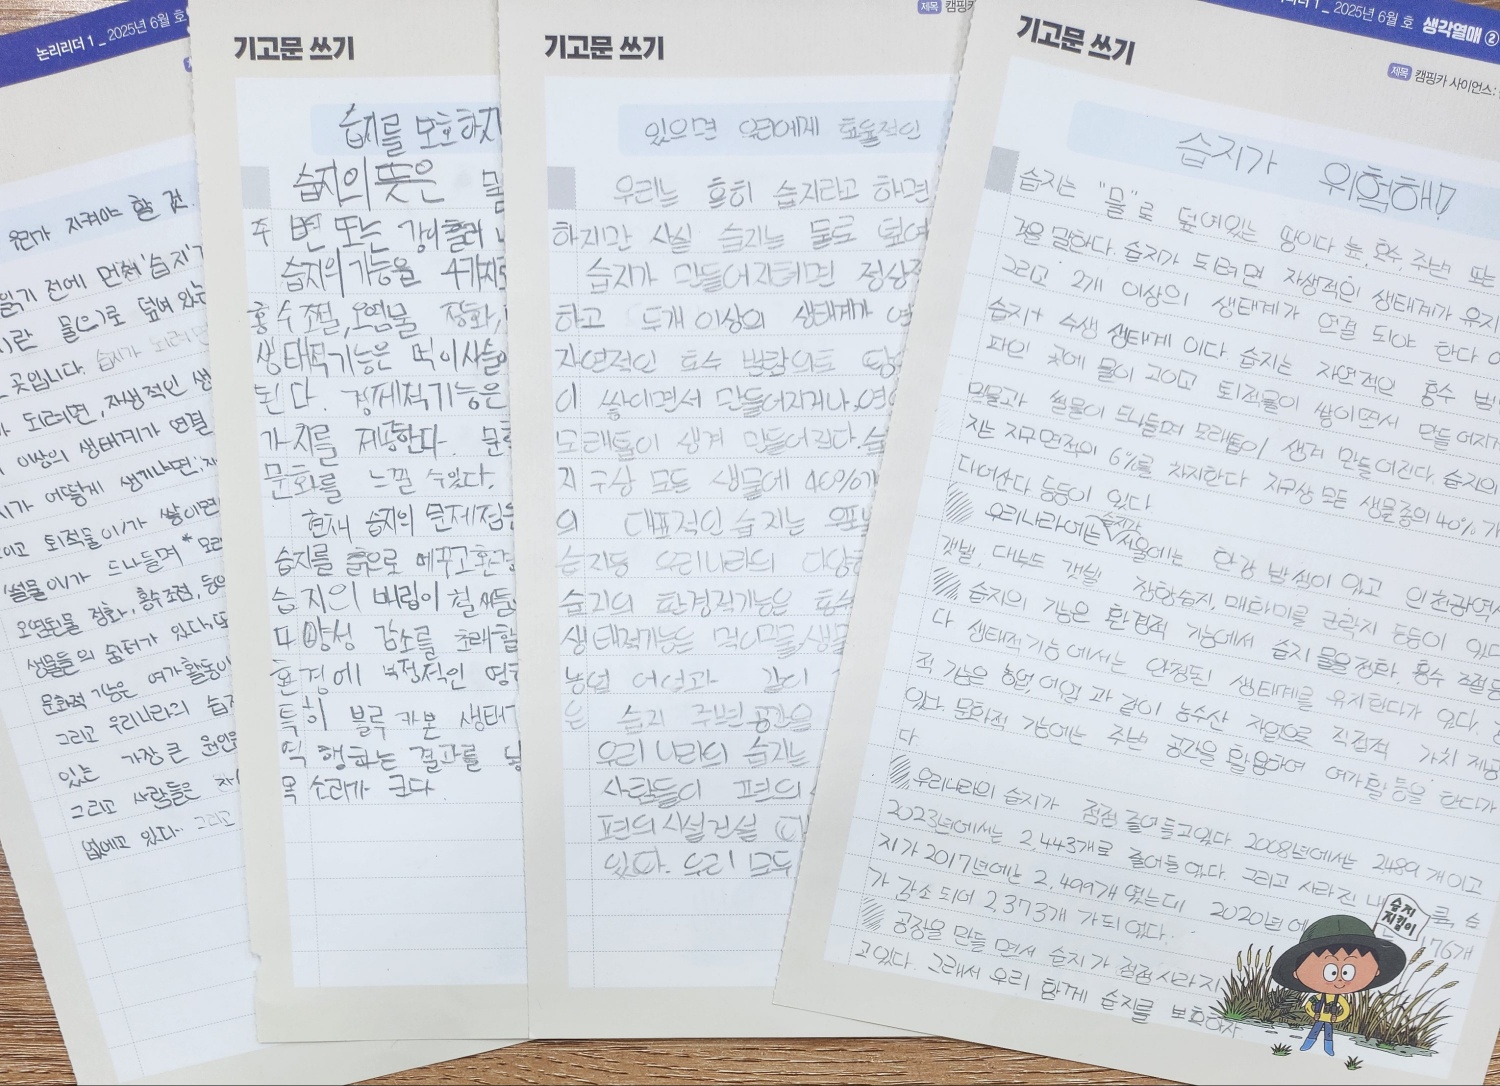 논리리더 1 _ 2025년 6월 호
우리가 지켜야 할 것.
읽기 전에 먼저 '습지'
물(으)로 덮여 있는
곳입니다. 습지가 되려면
되려면, 자생적인 생
이상의 생태계가 연결
어떻게 생기냐면, 자
퇴적물이/가 쌓이면
썰물이/가 드나들며 모래
오염된물 정화, 홍수조절, 등의
생물들의 쉼터가 있다. 또
문화적 기능은 여가활동이
그리고 우리나라의 습지
있는 가장 큰 원인은
그리고 사람들은 자
없애고 있다. 그리고
기고문 쓰기
습지를 보호하자
습지의 뜻은 물
주변 또는 강이 흘러
습지의 기능을 4가지로
홍수조절, 오염물 정화,
생태적기능은 먹이사슬이
된다. 경제적기능은
가치를 제공한다. 문화
문화를 느낄 수있다.
현재 습지의 문제점은
습지를 흙으로 메꾸고 환경
습지의 매립이 철새들
다양성 감소를 초래할
환경에 부정적인 영향
특히 블루 카본 생태계
역행하는 결과를 낳
목소리가 크다.
기고문 쓰기
제목 캠핑카
있으면 우리에게 효율적인
우리는 흔히 습지라고 하면
하지만 사실 습지는 물로 덮여
습지가 만들어지려면 정상적
하고 두개 이상의 생태계가 연
자연적인 호수 범람으로 땅이
이 쌓이면서 만들어지거나, 연안
모래톱이 생겨 만들어진다. 습
지구상 모든 생물에 40%가
의 대표적인 습지는 우포늪
습지등 우리나라의 다양한
습지의 환경적기능은 홍수
생태적기능은 먹이물을 생물
농업 어업과 같이
은 습지 주변 공간을
우리 나라의 습지는
사람들이 편의
편의 시설 건설
있다. 우리 모두
논리리더 1 _ 2025년 6월 호 생각열매 ②
기고문 쓰기
제목 캠핑카 사이언스:
습지가 위험해!
습지는 "물"로 덮여있는 땅이다 늪, 호수, 주변 또는
것을 말한다. 습지가 되려면 자생적인 생태계가 유지
그리고 2개 이상의 생태계가 연결 되야 한다
습지+ 수생 생태계 이다 습지는 자연적인 홍수 범람
파인 곳에 물이 고이고 퇴적물이 쌓이면서 만들어지거
밀물과 썰물이 드나들며 모래톱이 생겨 만들어진다. 습지의
지는 지구 면적의 6%를 차지한다 지구상 모든 생물종의 40%가
다여산다 등등이 있다
우리나라에는 습지가 서울에는 한강 밤섬이 있고 인천광역시
갯벌, 대부도 갯벌 장항습지, 매화마름 군락지 등등이 있다
습지의 기능은 환경적 기능에서 습지 물을 정화, 홍수 조절 등
다 생태적 기능에서는 안정된 생태계를 유지한다가 있다.
적 기능은 농업, 어업 과 같이 농수산 자원으로 직접적 가치 제공
있다. 문화적 기능에는 주변 공간을 활용하여 여가활동을 한다가
다.
우리나라의 습지가 점점 줄어 들고있다 2008년에서는 2489개이고
2023년에서는 2443개로 줄어들었다. 그리고 사라진 내륙, 습
지가 2017년에는 2,499개 였는데 2020년에 76개
가 감소 되어 2,373개 가 되었다.
공장을 만들 면서 습지가 점점 사라지
고있다. 그래서 우리 함께 습지를 보호하자
습지
지킴이